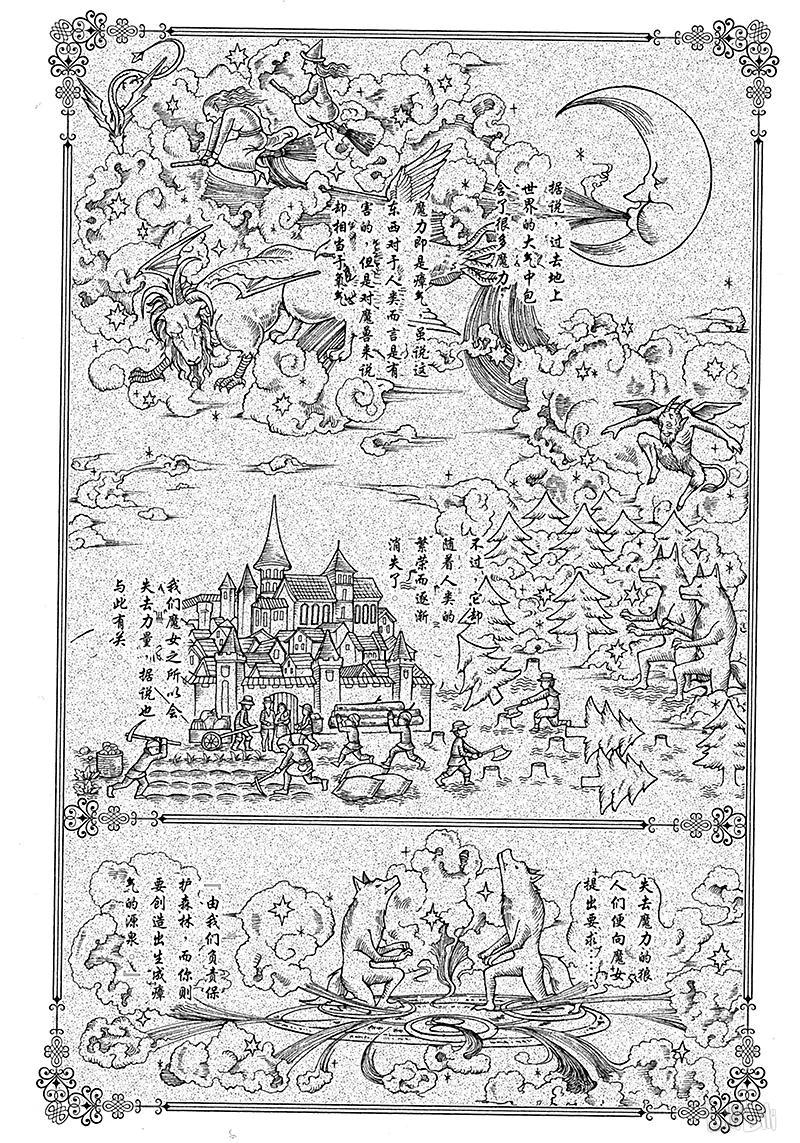 据说，过去地上
世界的大气中包
含了很多魔力，
魔力即是瘴气，虽说这
东西对于人类而言是有
害的，但是对魔兽来说
却相当于氧气
不过，它却
随着人类的
繁荣而逐渐
消失了
我们魔女之所以会
失去力量，据说也
与此有关
失去魔力的狼
人们便向魔女
提出要求……
『由我们负责保
护森林，而你则
要创造出生成瘴
气的源泉』